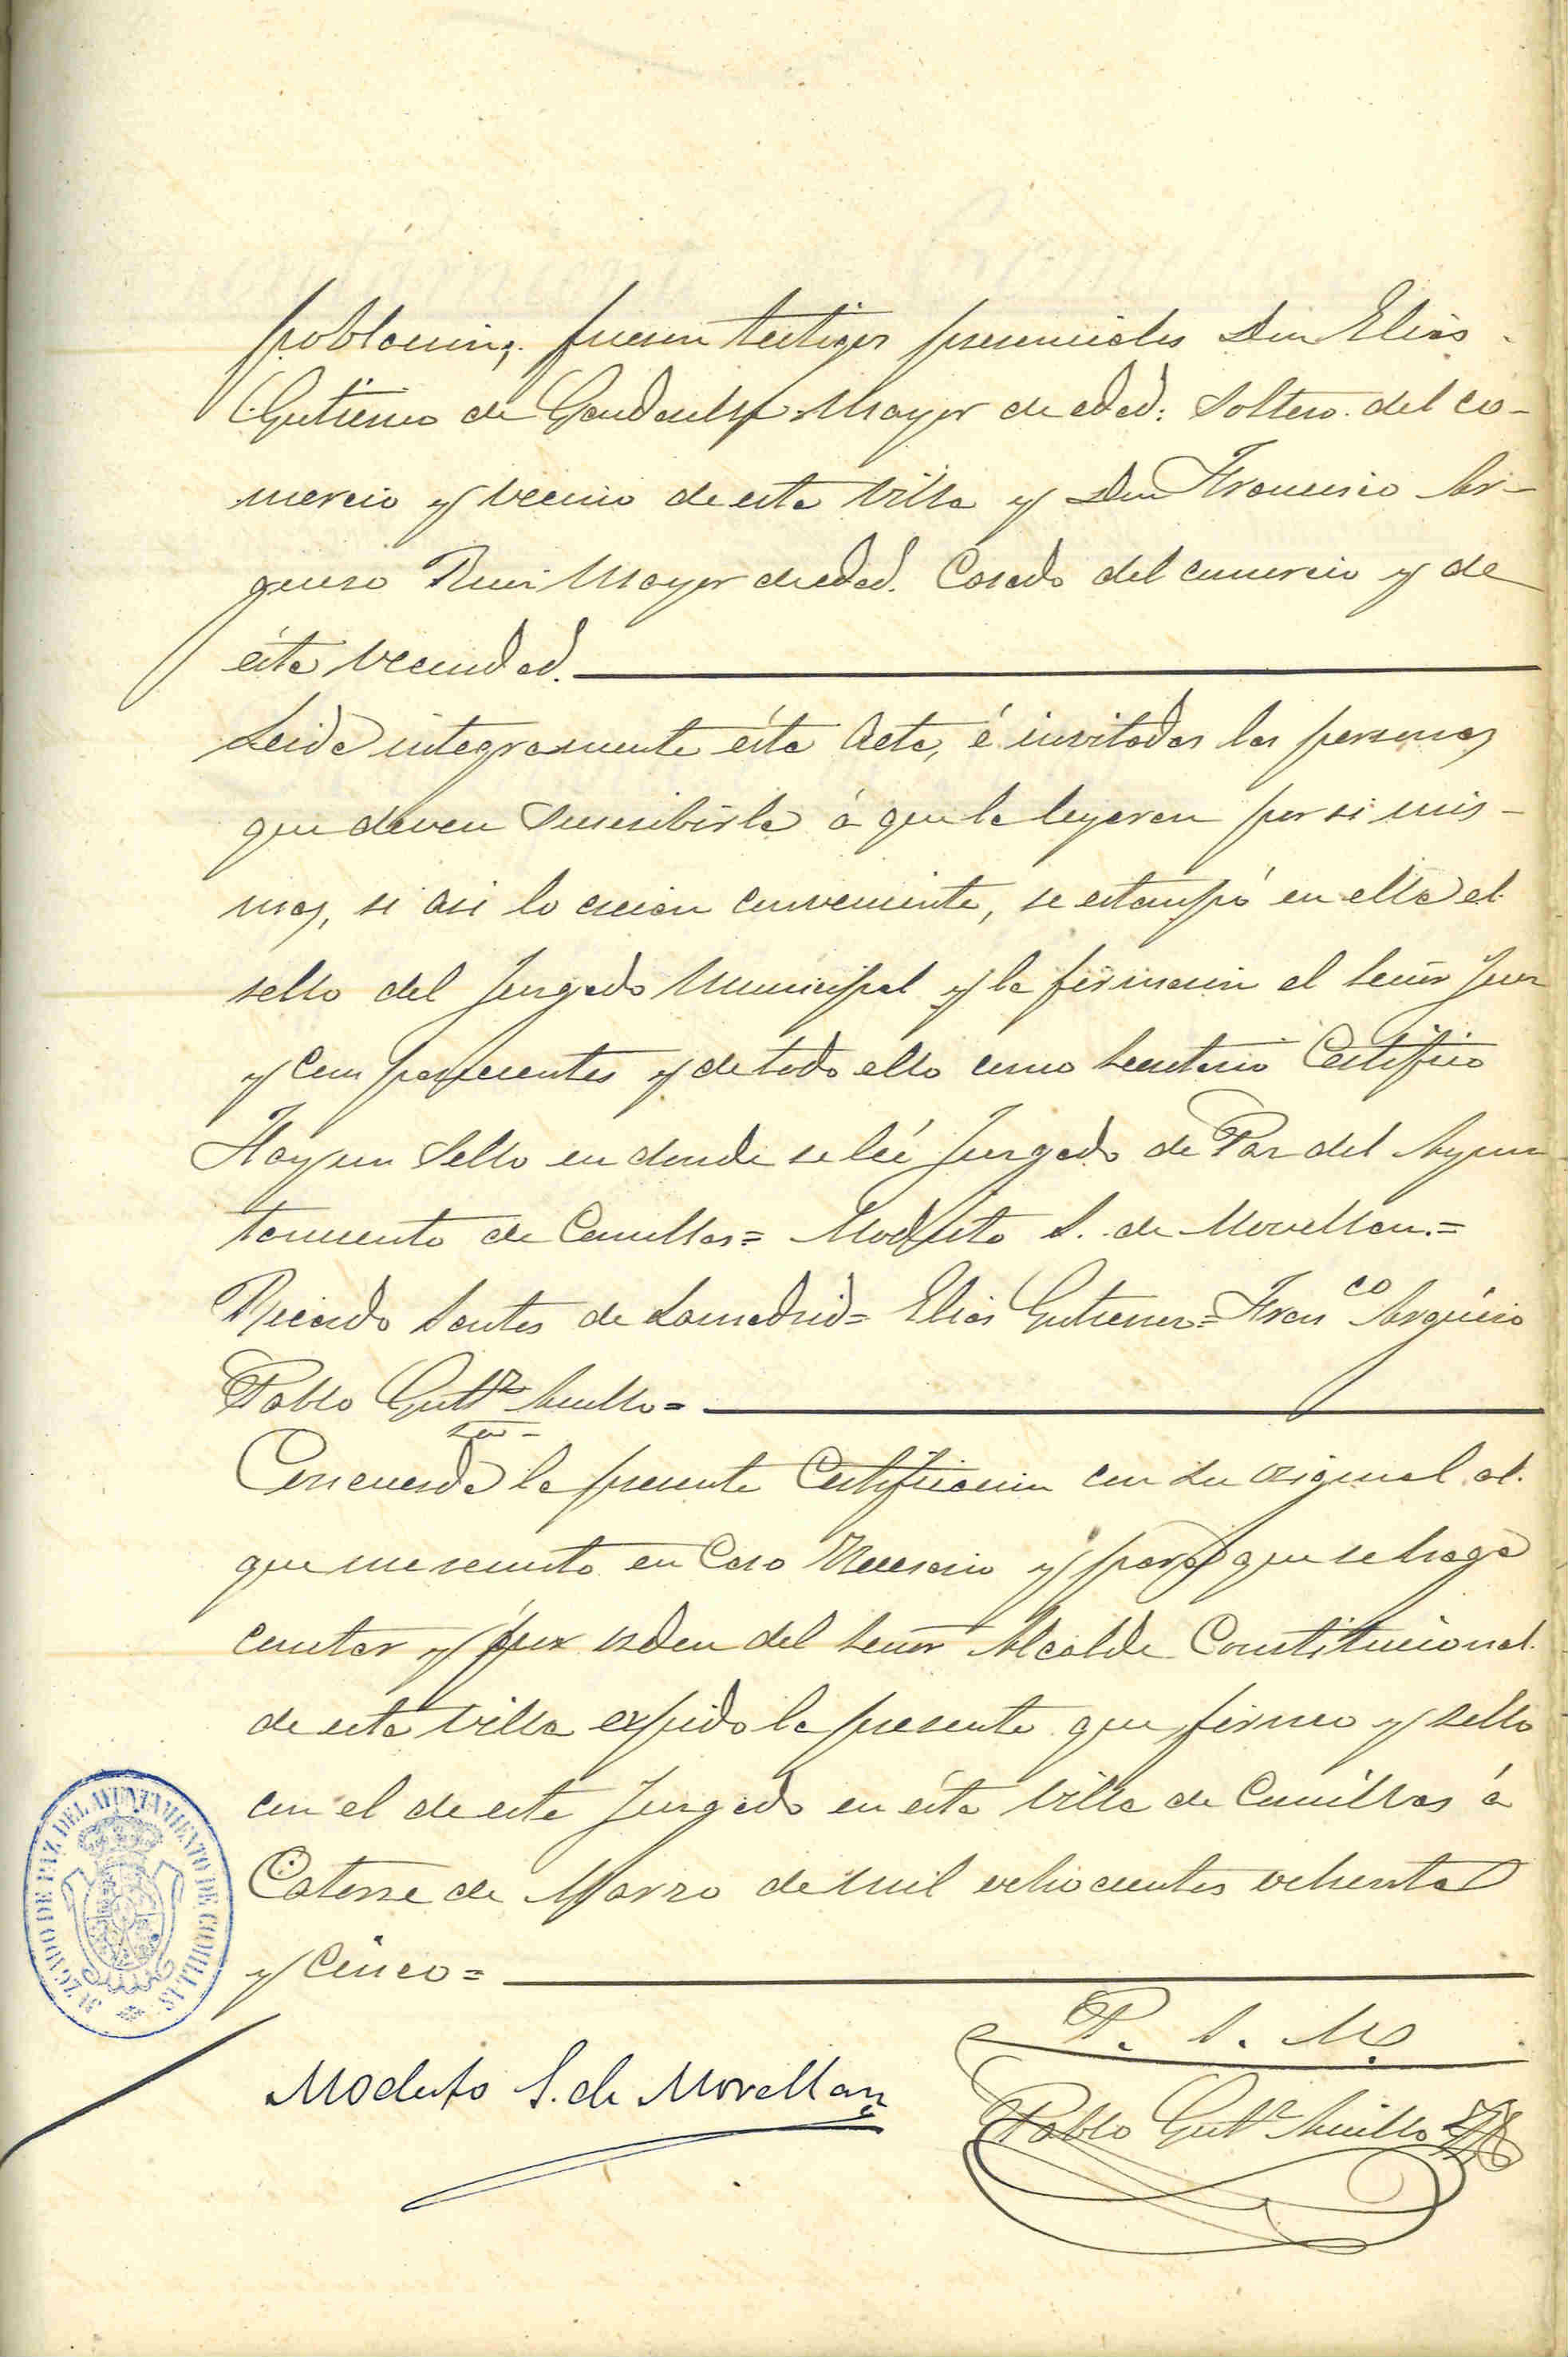 poblacion; fueron testigos presenciales Don Elias
Gutierrez de Gandarilla Mayor de edad: Soltero. del co-
mercio y vecino de esta Villa y Don Francisco Ar-
gueso Ruiz Mayor de edad. Casado del comercio y de
ésta vecindad.
Leida integramente ésta Acta, é invitadas las personas
que deven suscribirla á que la leyeran por si mis-
mas, si asi lo creian conveniente, se estampó en ella el
sello del Juzgado Municipal y la firmaron el Señor Juez
y comparecientes y de todo ello como Secretario Certifico
Hay un Sello en donde se leé Juzgado de Paz del Ayun
tamiento de Comillas = Modesto S. de Movellan. =
Ricardo Santos de Lamadrid = Elias Gutierrez = Fran co Argüeso
Pablo Gutrz =
Concuerda la presente Certificacion con su original al
que me remito en Caso Necesario y para que se haga
constar y por orden del Señor Alcalde Constitucional
de esta Villa expido la presente que firmo y sello
con el de este Juzgado en ésta Villa de Comillas á
Catorce de Marzo de mil ochocientos ochenta
y Cinco =
JUZGADO DE PAZ DEL AYUNTAMIENTO DE COMILLAS
P. S. M.
Modesto S. de Movellan
Pablo Gutrz